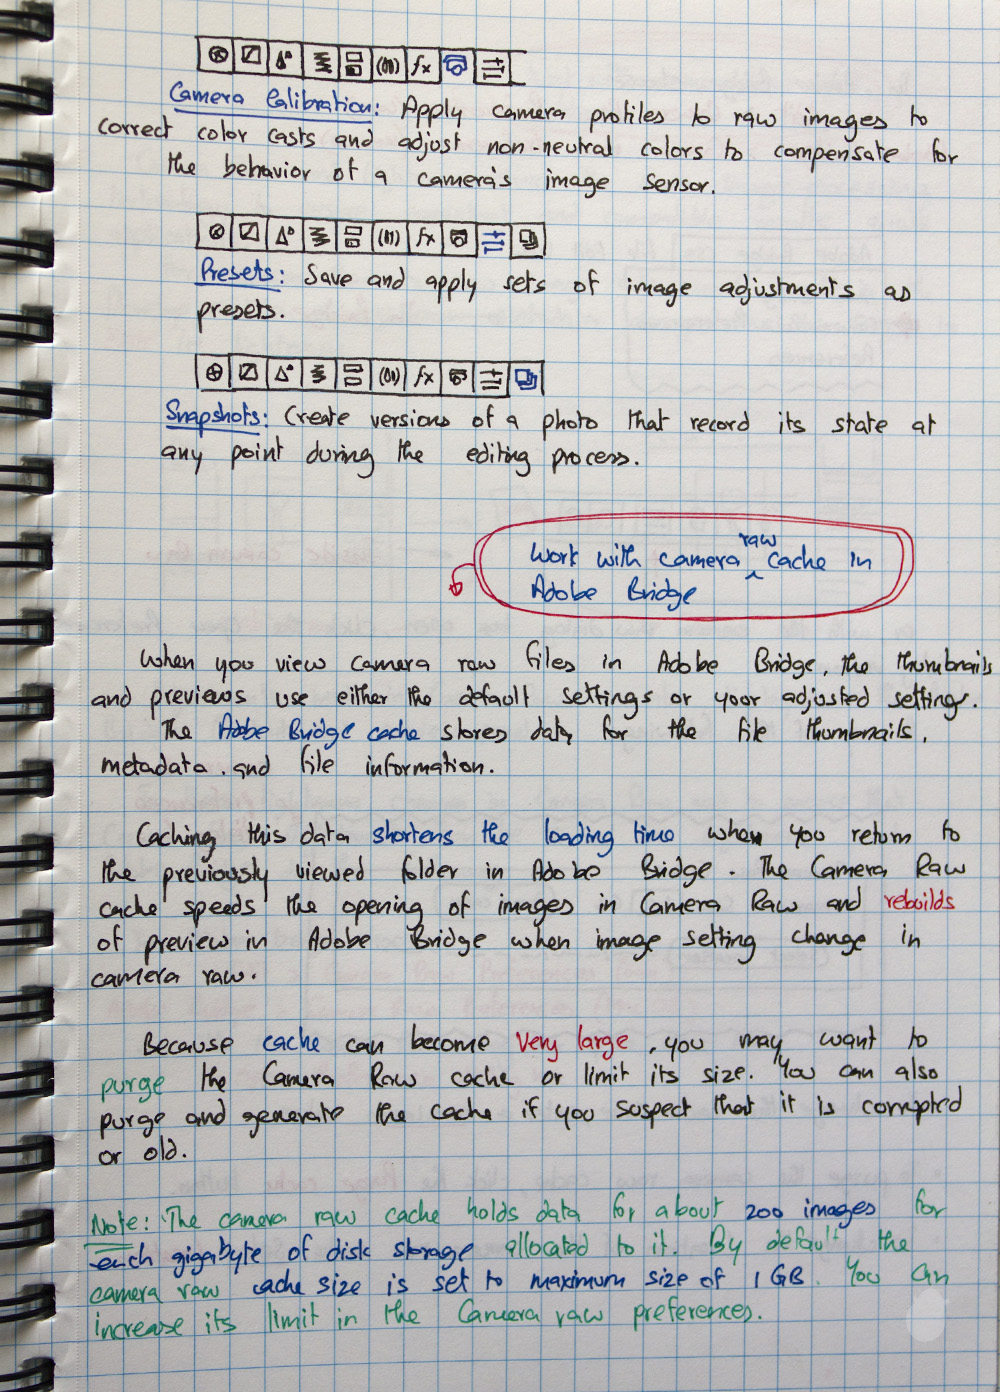 Camera Calibration: Apply camera profiles to raw images to
correct color casts and adjust non-neutral colors to compensate for
the behavior of a camera's image sensor.
Presets: Save and apply sets of image adjustments as
presets.
Snapshots: Create versions of a photo that record its state at
any point during the editing process.
Work with camera raw cache in
Adobe Bridge
When you view camera raw files in Adobe Bridge, the thumbnails
and previews use either the default settings or your adjusted setting.
The Adobe Bridge cache stores data for the file thumbnails,
metadata, and file information.
Caching this data shortens the loading time when you return to
the previously viewed folder in Adobe Bridge. The Camera Raw
cache speeds the opening of images in Camera Raw and rebuilds
of preview in Adobe Bridge when image setting change in
camera raw.
Because cache can become very large, you may want to
purge the Camera Raw cache or limit its size. You can also
purge and generate the cache if you suspect that it is corrupted
or old.
Note: The camera raw cache holds data for about 200 images for
each gigabyte of disk storage allocated to it. By default the
camera raw cache size is set to maximum size of 1 GB. You can
increase its limit in the Camera raw preferences.